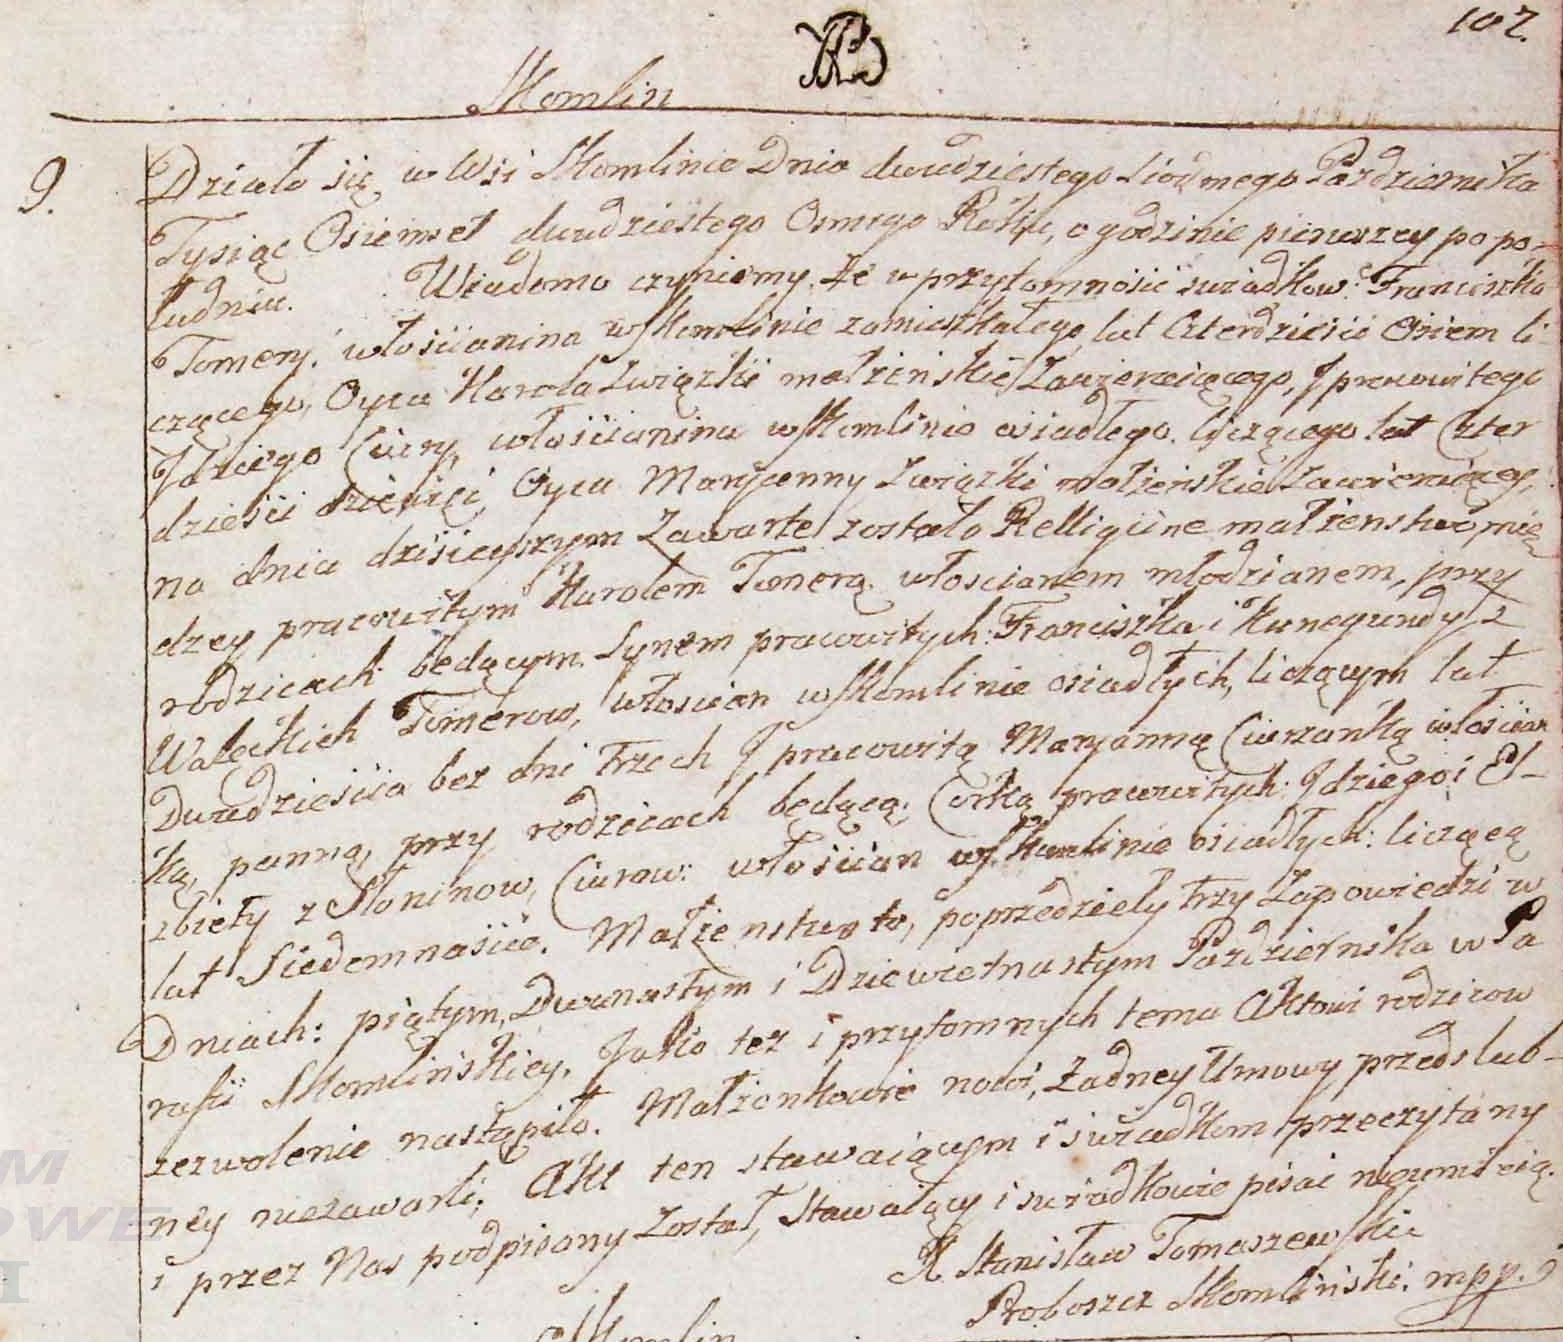 107.
Skomlin
9.
Działo się w Wsi Skomlinie Dnia dwudziestego siodmego Pazdziernika
Tysiąc Osiemset dwudziestego Osmego Roku, o godzinie pierwszey po po-
ludniu. Wiadomo czyniemy, Ze w przytomnosci swiadkow: Franciszka
Tomery, włoscianina w Skomlinie zamieszkałego, lat Czterdziesci Osiem li-
czącego, Oyca Karola Związki małzenskie Zawieraiącego, I pracowitego
Idziego Ciury, włoscianina w Skomlinie osiadłego. liczącego lat Czter
dziesci dziewięć, Oyca Maryanny Związki małzenskie Zawieraiącey,
na dniu dzisieyszym Zawarte zostało Relligiine małzenstwo, mię
dzey pracowitym Karolem Tomerą. włoscianem młodzianem, przy
rodzicach będącym. Synem pracowitych: Franciszka i Kunegundy z
Wałęckich Tomerow, włoscian w Skomlinie osiadłych, liczącym lat
Dwudziescia bez dni trzech I pracowitą Maryanną Ciurzanką włoscian
ką, panną, przy rodzicach będącą. Corką pracowitych: Idziego i El-
zbiety z Słoninow, Ciurow: włoscian w Skomlinie osiadłych: liczącą
lat Siedemnascie. Małzenstwo to, poprzedzieły trzy Zapowiedzi w
Dniach: piątym, Dwunastym i Dziewietnastym Pazdziernika w Pa
rafii Skomlinskiey, Jako tez i przytomnych temu Aktowi rodzicow
zezwolenie nastąpiło. Małzonkowie nowi, Zadney Umowy przedslub-
ney niezawarli; Akt ten stawaiącym i swiadkom przeczytany
i przez Nas podpisany Został, Stawaiący i swiadkowie pisac nieumieią.
X Stanisław Tomaszewski
Proboszcz Skomlinski. mpp.
Skomlin